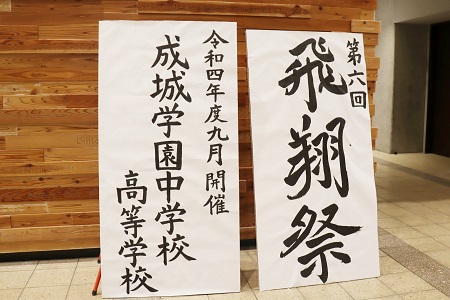 第六回
飛翔祭
令和四年度九月開催
成城学園中学校
高等学校